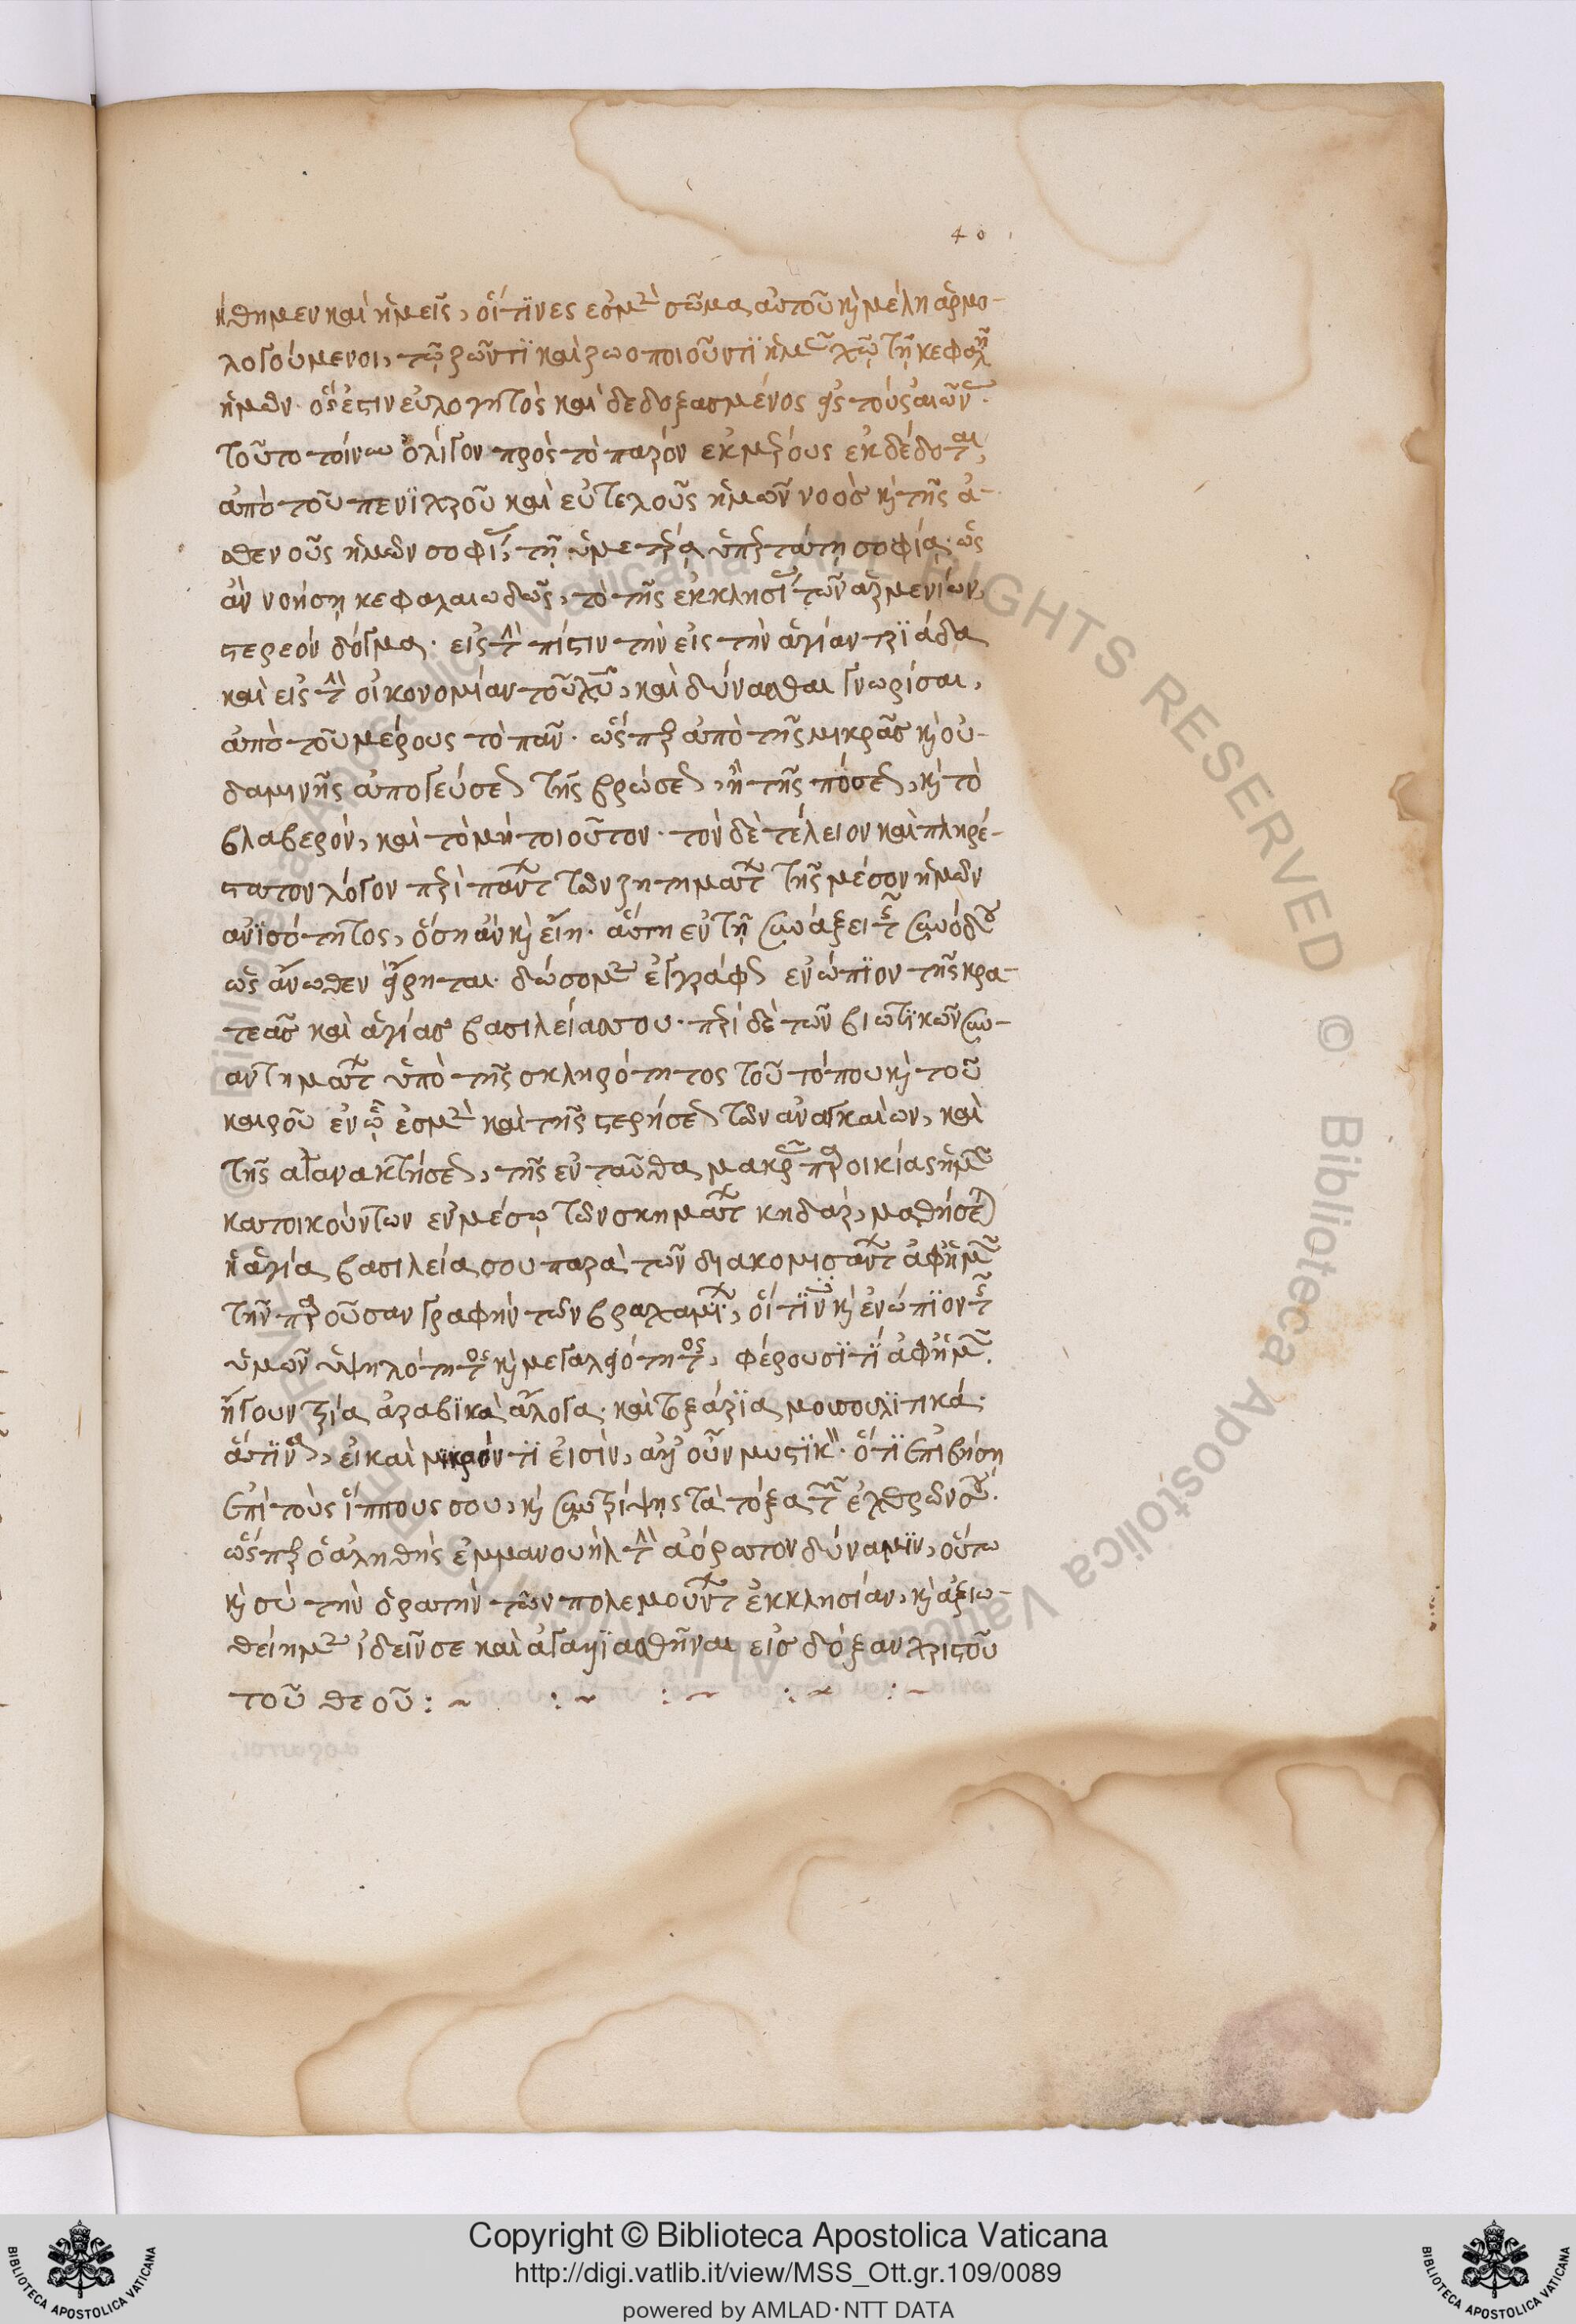 40
ήθημεν καὶ ἡμεῖς, οἵτϊνες ἐσμὲν σῶμα αὐτοῦ κὶ μέλη ἁρμο-
λογούμενοι, τῷ ζῶντϊ καὶ ζωοποιοῦντϊ ἡμᾶς χῷ τῇ κεφαλῇ
ἡμῶν· ὅς ἐστιν εὐλογητὸς καὶ δεδοξασμένος εἰς τοὺς αἰῶνας.
τοῦτο τοίνυν ὀλίγον πρὸς τὸ παρὸν ἐκ μέρους ἐκδέδοται,
ἀπὸ τοῦ πενϊχροῦ καὶ εὐτελοῦς ἡμῶν νοὸς κὶ τῆς ἀ-
σθενοῦς ἡμῶν σοφίας, τῇ ὑμετέρᾳ ὑπερτάτῃ σοφίᾳ· ὡς
ἂν νοήσῃ κεφαλαιωδῶς, τὸ τῆς ἐκκλησίας τῶν ἀρμενίων,
στερεὸν δόγμα· εἰς τὴν πίστιν τὴν εἰς τὴν ἁγίαν τρϊάδα
καὶ εἰς τὴν οἰκονομίαν τοῦ χυ, καὶ δύνασθαι γνωρίσαι,
ἀπὸ τοῦ μέρους τὸ πᾶν· ὥσπερ ἀπὸ τῆς μικρᾶς κὶ οὐ-
δαμινῆς ἀπογεύσεως τῆς βρώσεως, ἢ τῆς πόσεως, κὶ τὸ
βλαβερόν, καὶ τὸ μὴ τοιοῦτον· τὸν δὲ τέλειον καὶ πληρέ-
στατον λόγον περὶ πάντων τῶν ζητημάτων τῆς μέσον ἡμῶν
ἀνϊσότητος, ὅση ἂν κὶ εἴη· αὕτη ἐν τῇ συνάξει τῆς συνόδου
ὡς ἄνωθεν εἴρηται· δώσομεν ἐγγράφως ἐνώπϊον τῆς κρα-
τεᾶς καὶ ἁγίας βασιλείας σου· περὶ δὲ τῶν βιωτϊκῶν συν-
αντημάτων ὑπὸ τῆς σκληρότητος τοῦ τόπου κὶ τοῦ
καιροῦ ἐν ᾧ ἐσμὲν καὶ τῆς στερήσεως τῶν ἀναγκαίων, καὶ
τῆς ἀγανακτήσεως, τῆς ἐνταῦθα μακρᾶς παροικίας ἡμῶν
κατοικούντων ἐν μέσῳ τῶν σκημάτων κηδάρ, μαθήσεται
ἡ ἁγία βασιλεία σου παρὰ τῶν διακομισάντων ἀφ' ἡμῶν
τὴν παροῦσαν γραφὴν τῶν βραχαμίων, οἵτϊνες κὶ ἐνώπϊον τῆς
ὑμῶν ὑψηλότητος κὶ μεγαλειότητος, φέρουσί τϊ ἀφ' ἡμῶν.
ἤγουν τρία ἀραβϊκὰ ἄλογα· καὶ τοξάρϊα μοσουλϊτικά·
ἅτϊνα, εἰ καὶ μικρόν τϊ εἰσὶν, ἀλλ' οὖν μυστϊκά· ὅτϊ ἐπϊβήσῃ
ἐπὶ τοὺς ἵππους σου, κὶ συντρίψῃς τὰ τόξα τῶν ἐχθρῶν σου.
ὥσπερ ὁ ἀληθὴς ἐμμανουὴλ τὴν ἀόρατον δύναμϊν, οὕτω
κὶ σὺ τὴν ὁρατὴν τῶν πολεμούντων ἐκκλησίαν, κὶ ἀξιω-
θείημεν ἰδεῖν σε καὶ ἀγαλλϊασθῆναι εἰς δόξαν χριστοῦ
τοῦ θεοῦ : ~ : ~ : ~ : ~ : ~
Copyright © Biblioteca Apostolica Vaticana
http://digi.vatlib.it/view/MSS_Ott.gr.109/0089
powered by AMLAD·NTT DATA